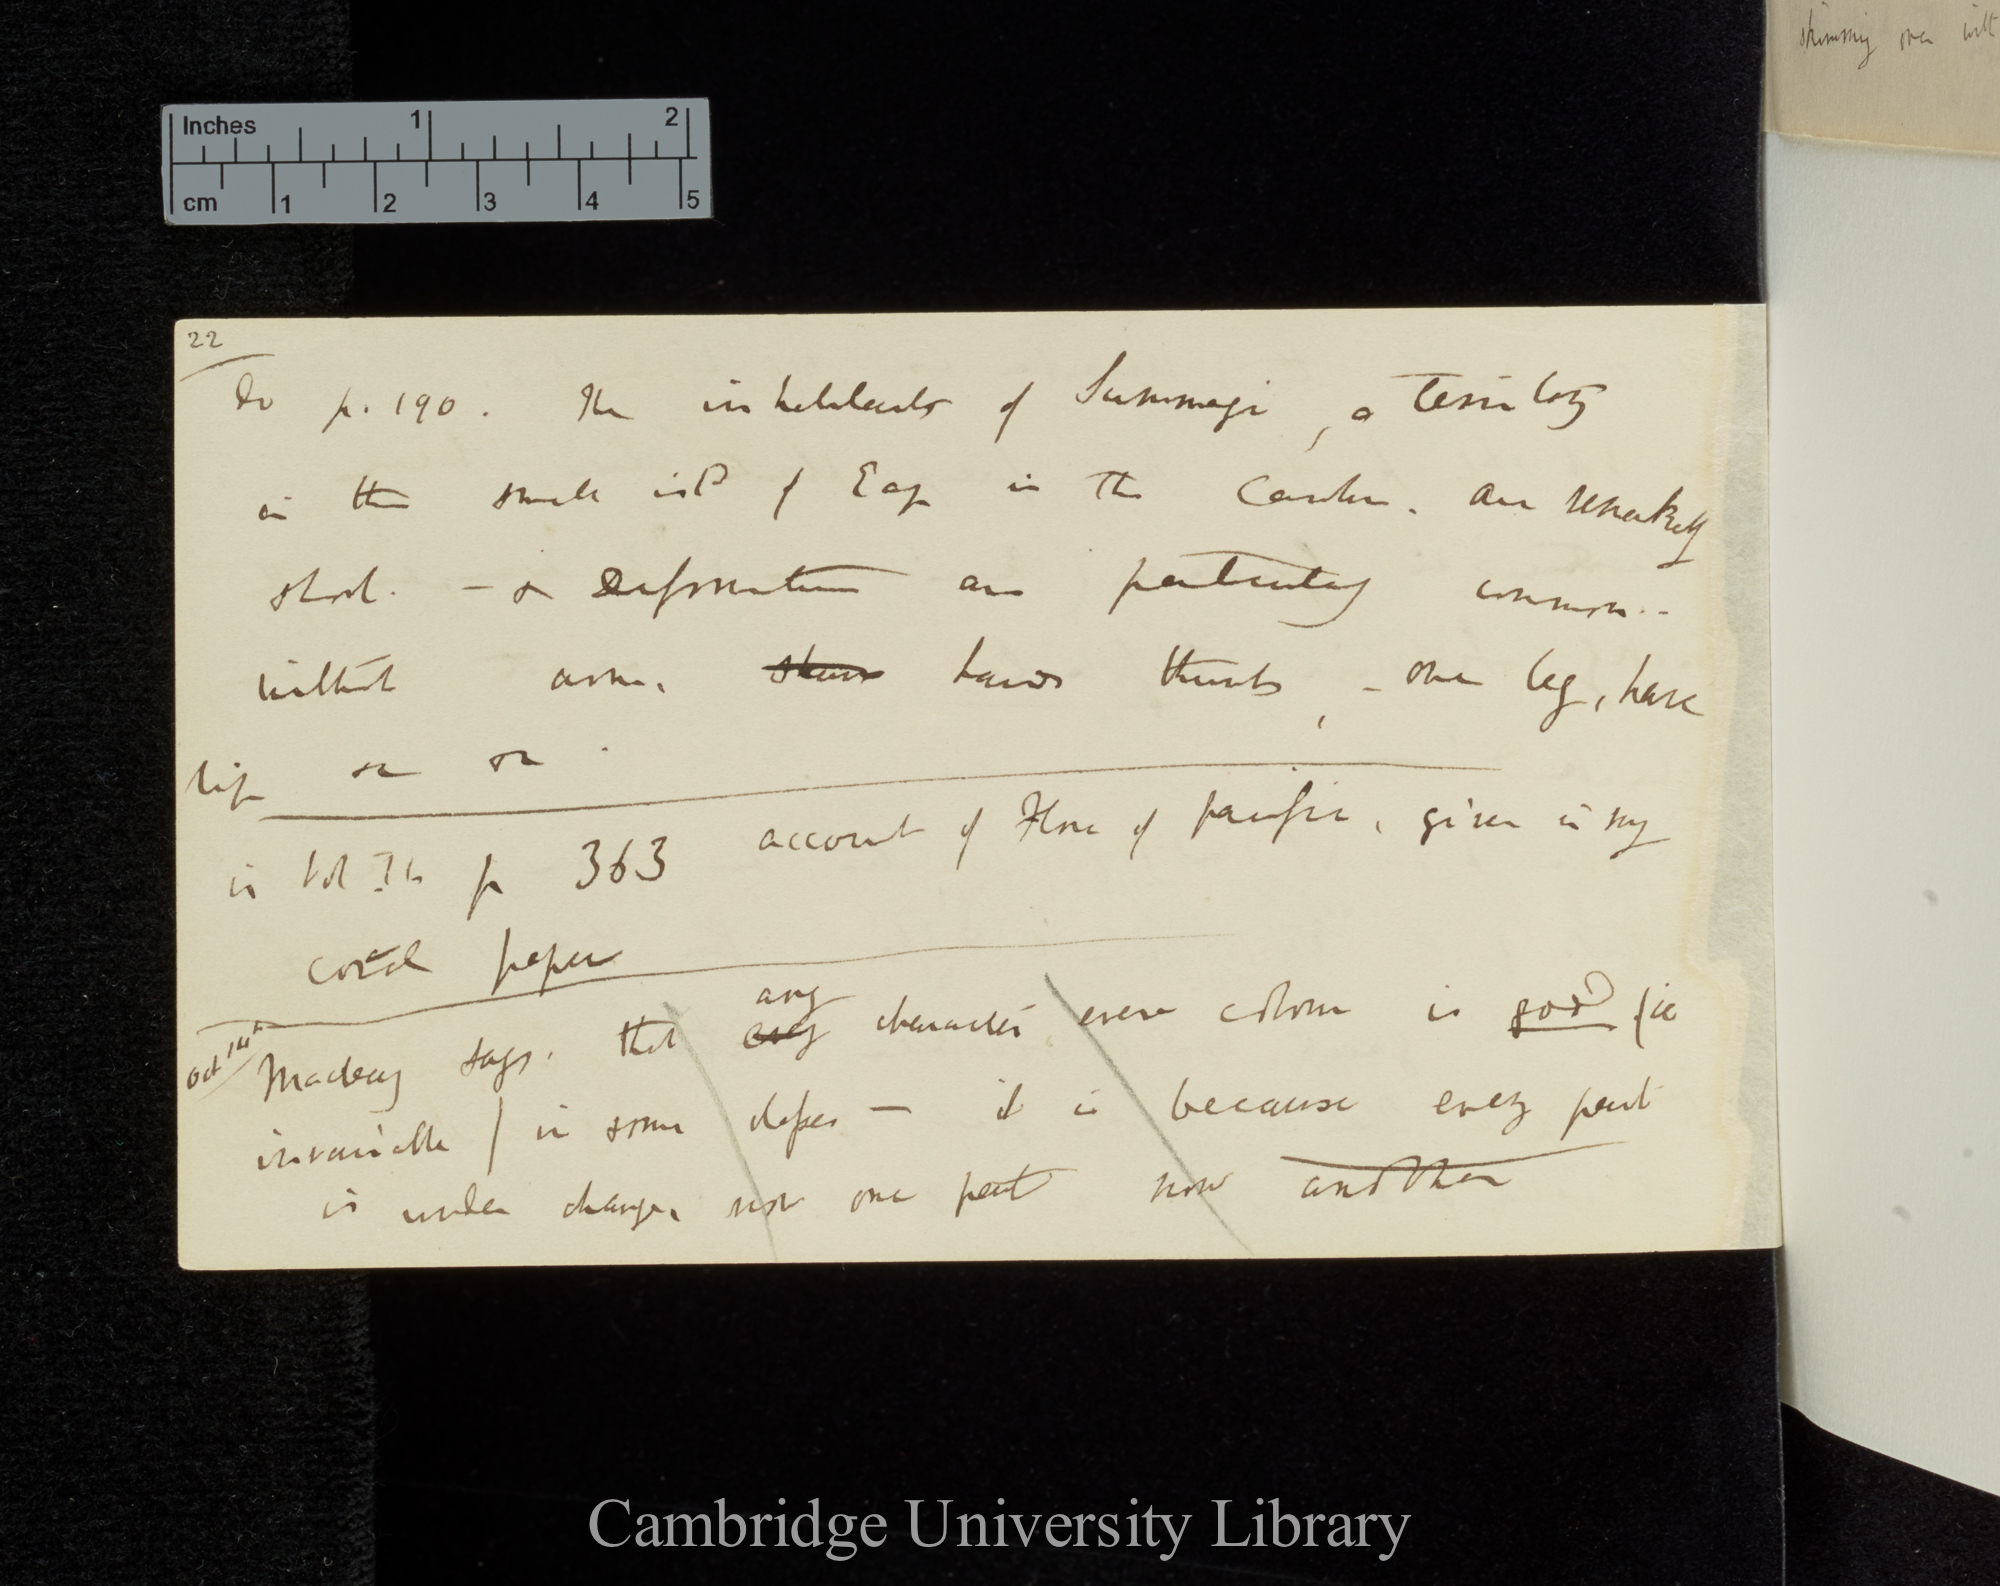 skimming over with
Inches 1 2
cm 1 2 3 4 5
22
Do p. 190. The inhabitants of Summagi, a territory
in the small isld of Eap in the Carolin. are remarkably
short. — & Deformations are particularly common..
without arms. hands thumbs, — one leg, hare
lip &c &c.
in Vol p 363 account of Flora of pacific, given in my
coral paper
Oct 14th Macleay says. that any character even colour is good (ie
invariable) in some classes — it is because every part
is under change, now one part now another
Cambridge University Library